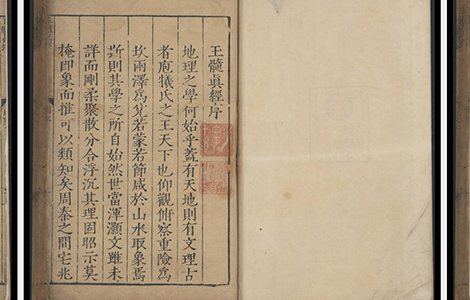 玉髓眞經序
地理之學何始乎蓋有天地則有文理古
者庖犧氏之王天下也仰觀俯察重險為
坎兩澤為兌若蒙若節咸於山水取象焉
斯則其學之所自始然世當渾灝文雖未
詳而剛柔聚散分合浮沉其理固昭示莫
掩即象而推可以類知矣周秦之間宅兆